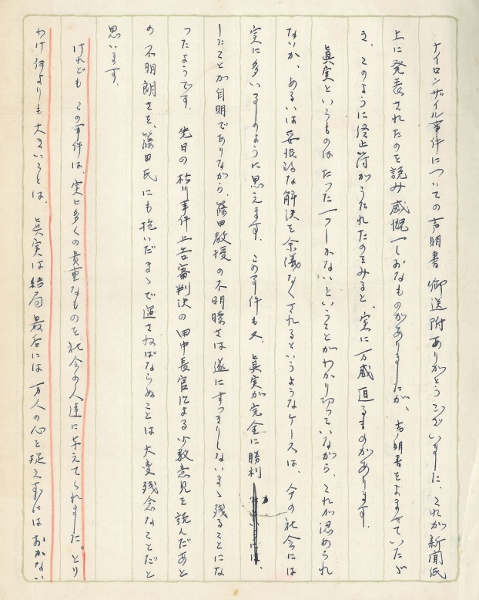 ナイロンザイル事件についての声明書 御送附ありがとうございました。これが新聞紙
上に発表されたのを読み感慨一しおなものがありましたが、声明書をよませていただ
き、このように終止符がうたれたのをみると、実に万感迫るものがあります。
眞実というものはたった一つしかないということがわかり切っていながら、これが認められ
ないか、あるいは妥協的な解決を余儀なくされるというようなケースは、今の社会には
実に多いもののように思えます。この事件も又、眞実が完全に勝利
したことが自明でありながら、篠田教授の不明瞭さは遂にすっきりしないまゝ残ることにな
ったようです。先日の松川事件上告審判決の田中長官による少数意見を読んだあと
の不明朗さを、篠田氏にも抱いだまゝで過さねばならぬことは大変残念なことだと
思います。
けれども この事件は、実に多くの貴重なものを社会の人達に与えてくれました。とり
わけ何よりも大きいことは、眞実は結局最后には万人の心を捉えずにはおかない